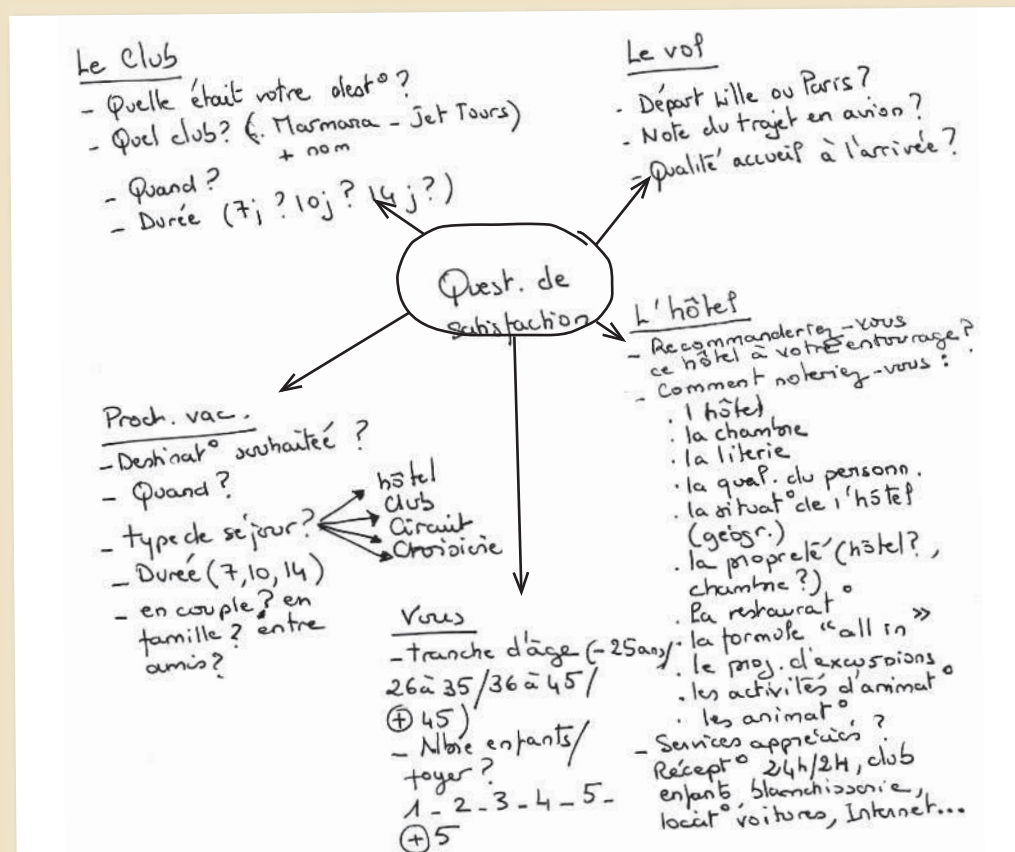 Le Club
- Quelle était votre dest° ?
- Quel club ? (. Marmara - Jet Tours)
+ nom
- Quand ?
- Durée (7j ? 10j ? 14 j ?)
Le vol
- Départ Lille ou Paris ?
- Note du trajet en avion ?
- Qualité accueil à l'arrivée ?
Quest. de
satisfaction
L'hôtel
- Recommanderiez-vous
ce hôtel à votre entourage ?
- Comment noteriez-vous :
. l hôtel
. la chambre
. la literie
. la qual. du personn.
. la situat° de l'hôtel
(géogr.)
. la propreté (hôtel ?,
chambre ?)
. La restaurat°
. la formule "all in"
. le prog. d'excursions
. les activités d'animat°
. les animat°
- Services appréciés ?
Récept° 24h/24, club
enfants, blanchisserie,
locat° voitures, Internet...
Proch. vac.
- Destinat° souhaitée ?
- Quand ?
- type de séjour ?
hôtel
Club
Circuit
Croisière
- Durée (7, 10, 14)
- en couple ? en
famille ? entre
amis ?
Vous
- tranche d'âge (- 25 ans/
26 à 35 / 36 à 45 /
+ 45)
- Nbre enfants/
foyer ?
1 - 2 - 3 - 4 - 5 -
+ 5